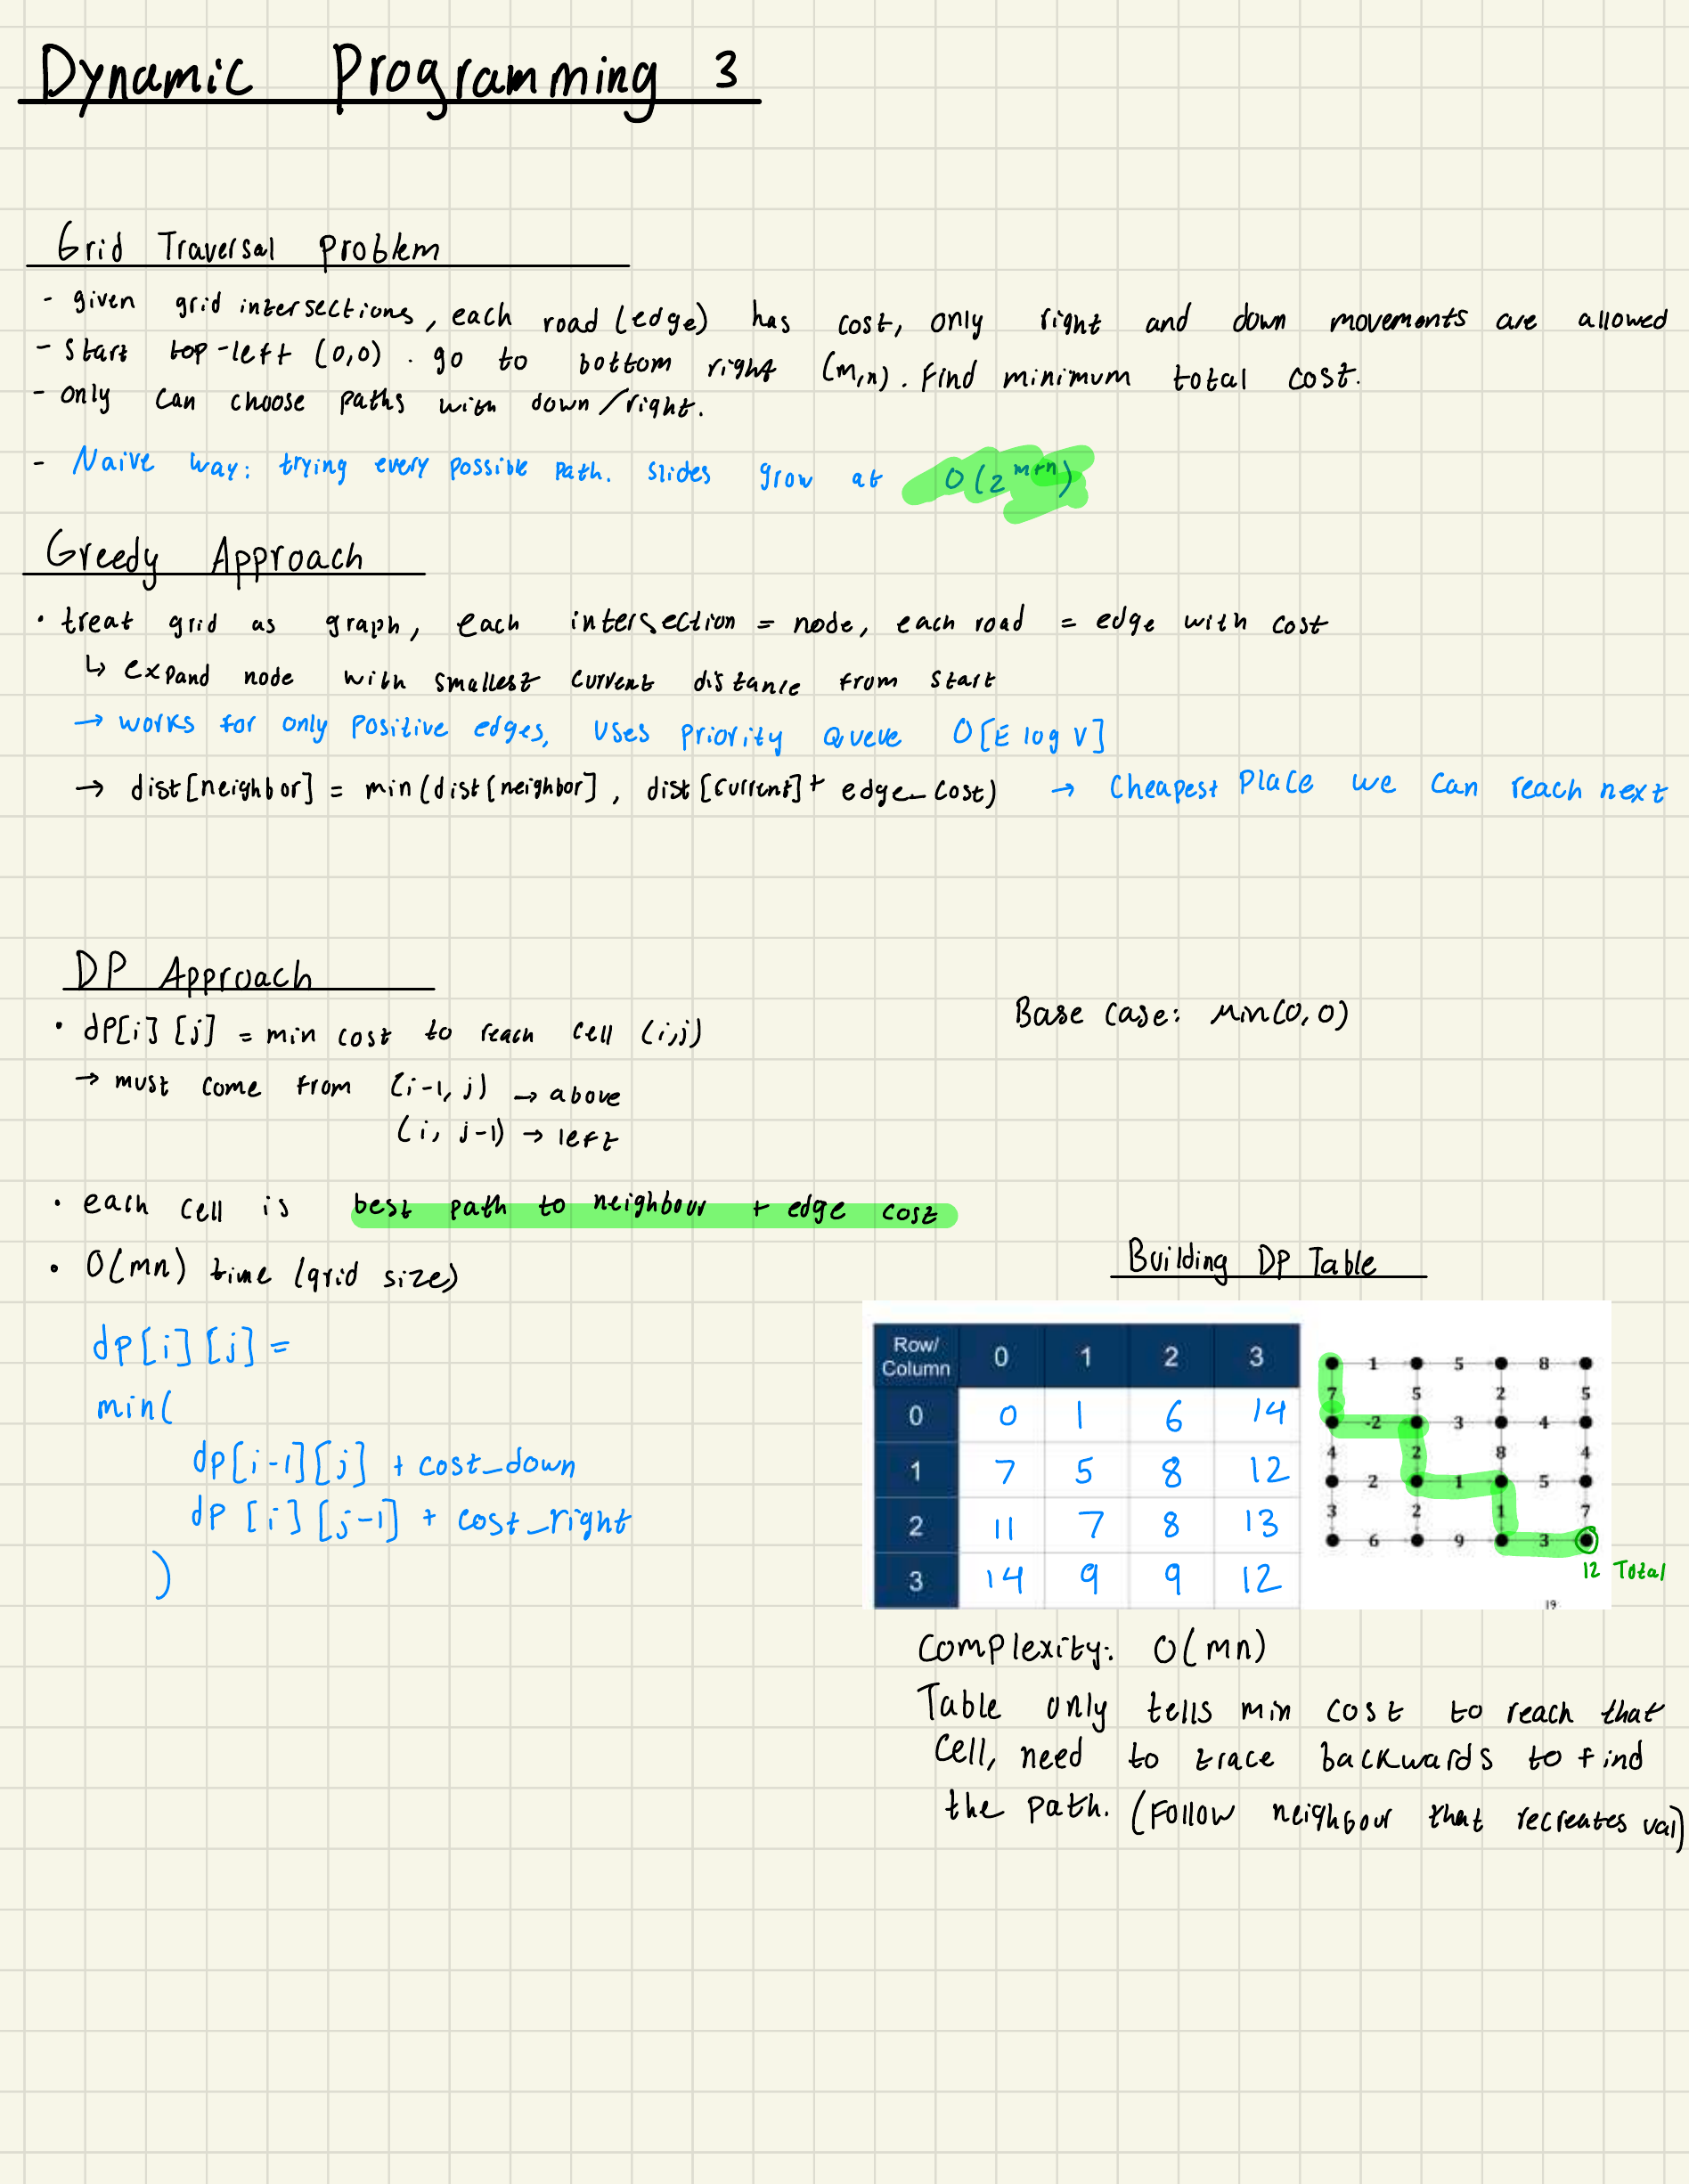 Dynamic Programming 3
Grid Traversal Problem
- given grid intersections, each road (edge) has cost, only right and down movements are allowed
- Start top-left (0,0). go to bottom right (m,n). Find minimum total cost.
- only can choose paths with down/right.
- Naive way: trying every possible path. slides grow at O(2^m+n)
Greedy Approach
• treat grid as graph, each intersection = node, each road = edge with cost
↳ expand node with smallest current distance from start
→ works for only positive edges, uses priority queue O[E log V]
→ dist[neighbor] = min(dist[neighbor], dist[current]+ edge_cost) → Cheapest place we can reach next
DP Approach
Base case: Min(0,0)
• dp[i][j] = min cost to reach cell (i,j)
→ must come from (i-1, j) → above
(i, j-1) → left
• each cell is best path to neighbour + edge cost
• O(mn) time (grid size)
dp[i][j] =
min(
dp[i-1][j] + cost_down
dp[i][j-1] + cost_right
)
Building DP Table
Row/
Column 0 1 2 3
0 0 1 6 14
1 7 5 8 12
2 11 7 8 13
3 14 9 9 12
1 5 8
7 5 2 5
-2 3 4
4 2 8 4
2 1 5
3 2 1 7
6 9 3
12 Total
19
Complexity: O(mn)
Table only tells min cost to reach that
cell, need to trace backwards to find
the path. (Follow neighbour that recreates val)